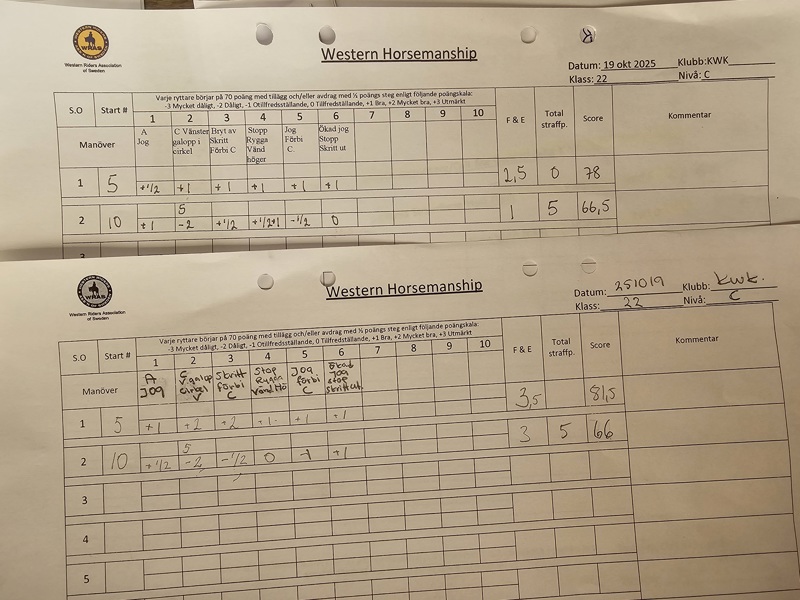 WRAS
Western Riders Association
of Sweden
Western Horsemanship
Datum: 19 okt 2025 Klubb:KWK
Klass: 22 Nivå: C
S.O Start # Varje ryttare börjar på 70 poäng med tillägg och/eller avdrag med ½ poängs steg enligt följande poängskala:
-3 Mycket dåligt, -2 Dåligt, -1 Otillfredsställande, 0 Tillfredsställande, +1 Bra, +2 Mycket bra, +3 Utmärkt
1 2 3 4 5 6 7 8 9 10 F & E Total straffp. Score Kommentar
Manöver A Jog C Vänster galopp i cirkel Bryt av Skritt Förbi C Stopp Rygga Vänd höger Jog Förbi C. Ökad jog Stopp Skritt ut
1 5 +½ +1 +1 +1 +1 +1 2,5 0 78
5
2 10 +1 -2 +½ +½+1 -½ 0 1 5 66,5
3
WRAS
Western Riders Association
of Sweden
Western Horsemanship
Datum: 251019 Klubb: KWK.
Klass: 22 Nivå: C
S.O Start # Varje ryttare börjar på 70 poäng med tillägg och/eller avdrag med ½ poängs steg enligt följande poängskala:
-3 Mycket dåligt, -2 Dåligt, -1 Otillfredsställande, 0 Tillfredsställande, +1 Bra, +2 Mycket bra, +3 Utmärkt
1 2 3 4 5 6 7 8 9 10 F & E Total straffp. Score Kommentar
Manöver A JOG C V.galop cirkel V Skritt förbi C Stop Rygga Vänd Hö JOG förbi C Ökad JOG stop skritt ut.
3,5 81,5
1 5 +1 +2 +2 +1 +1 +1
5
2 10 +½ -2 -½ 0 -1 +1 3 5 66
3
4
5